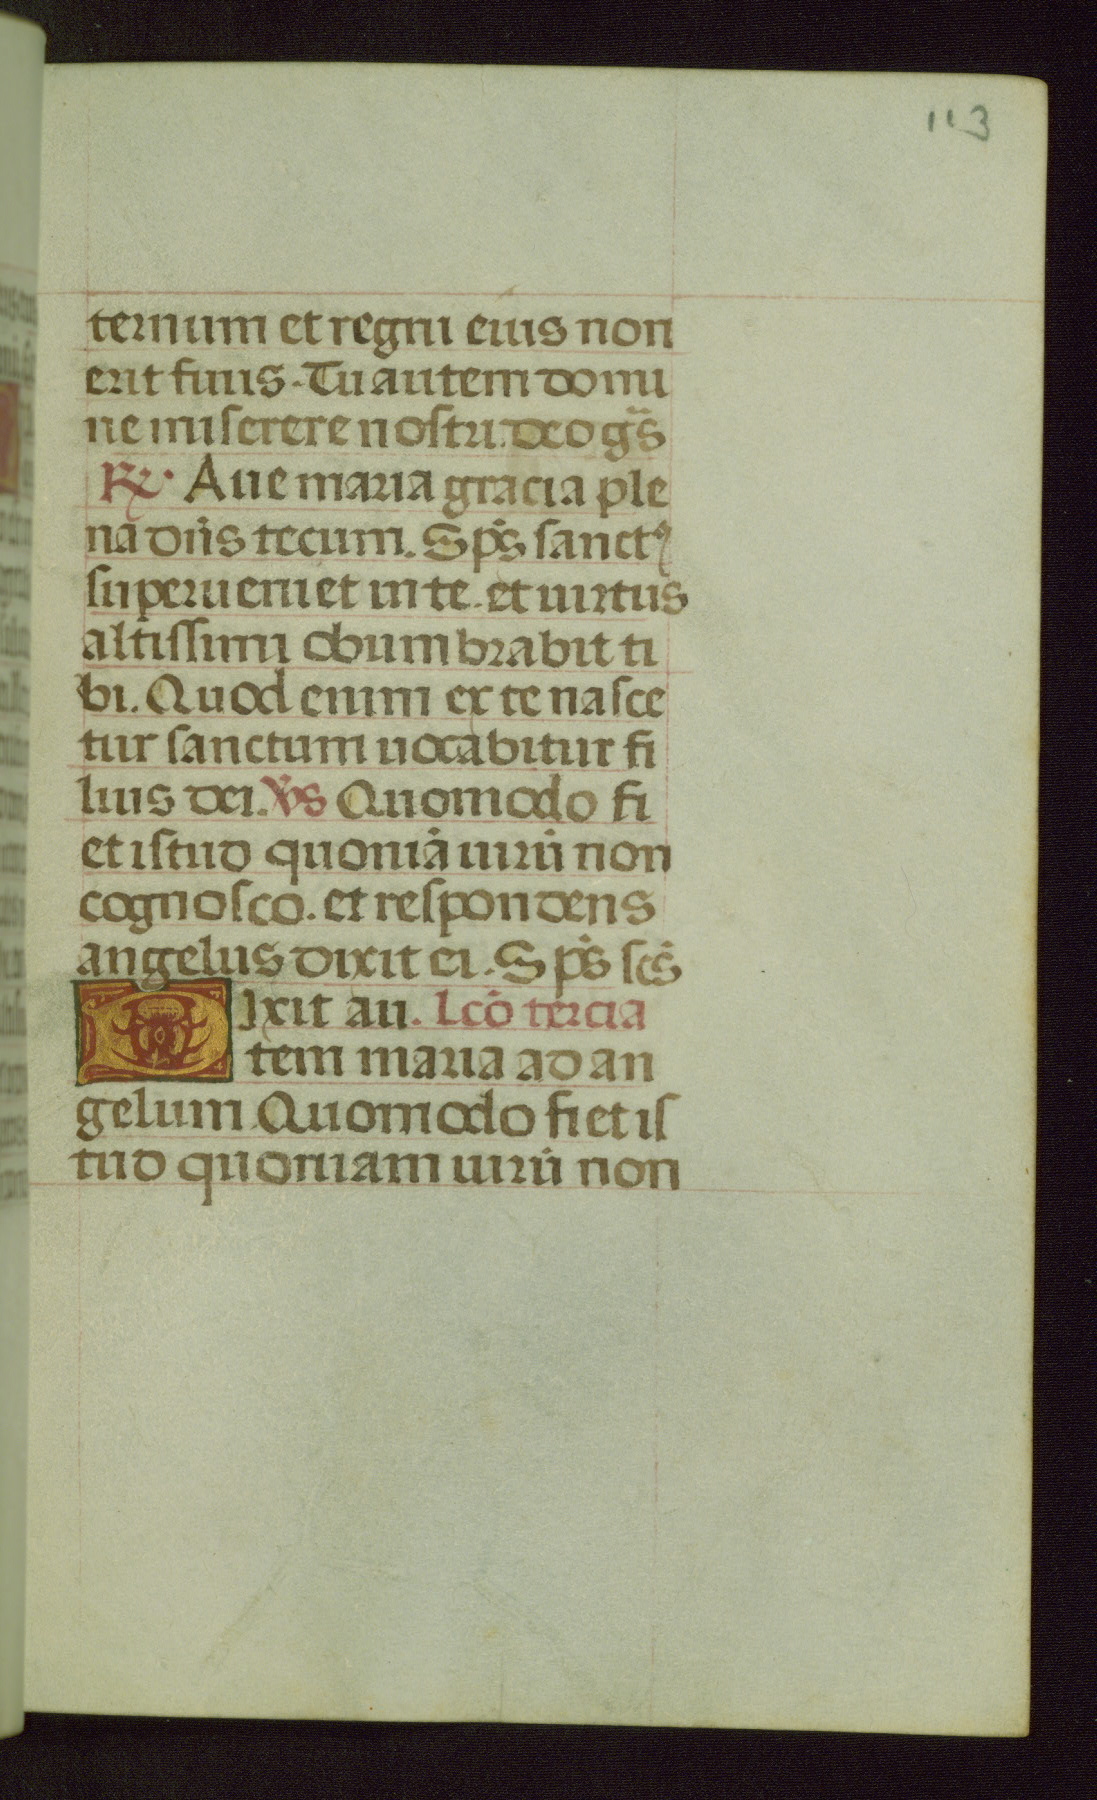 113
ternum et regni eius non
erit finis. Tu autem domi
ne miserere nostri. deo gr̃s
℟. Aue maria gracia ple
na dñs tecum. Sp̃s sanctꝰ
superueniet in te. et uirtus
altissimi obumbrabit ti
bi. Quod enim ex te nasce
tur sanctum uocabitur fi
lius dei. V̾s Quomodo fi
et istud quoniã uirũ non
cognosco. et respondens
angelus dixit ei. Sp̃s scs̃
Dixit au. lcõ tercia
tem maria ad an
gelum Quomodo fiet is
tud quoniam uirũ non